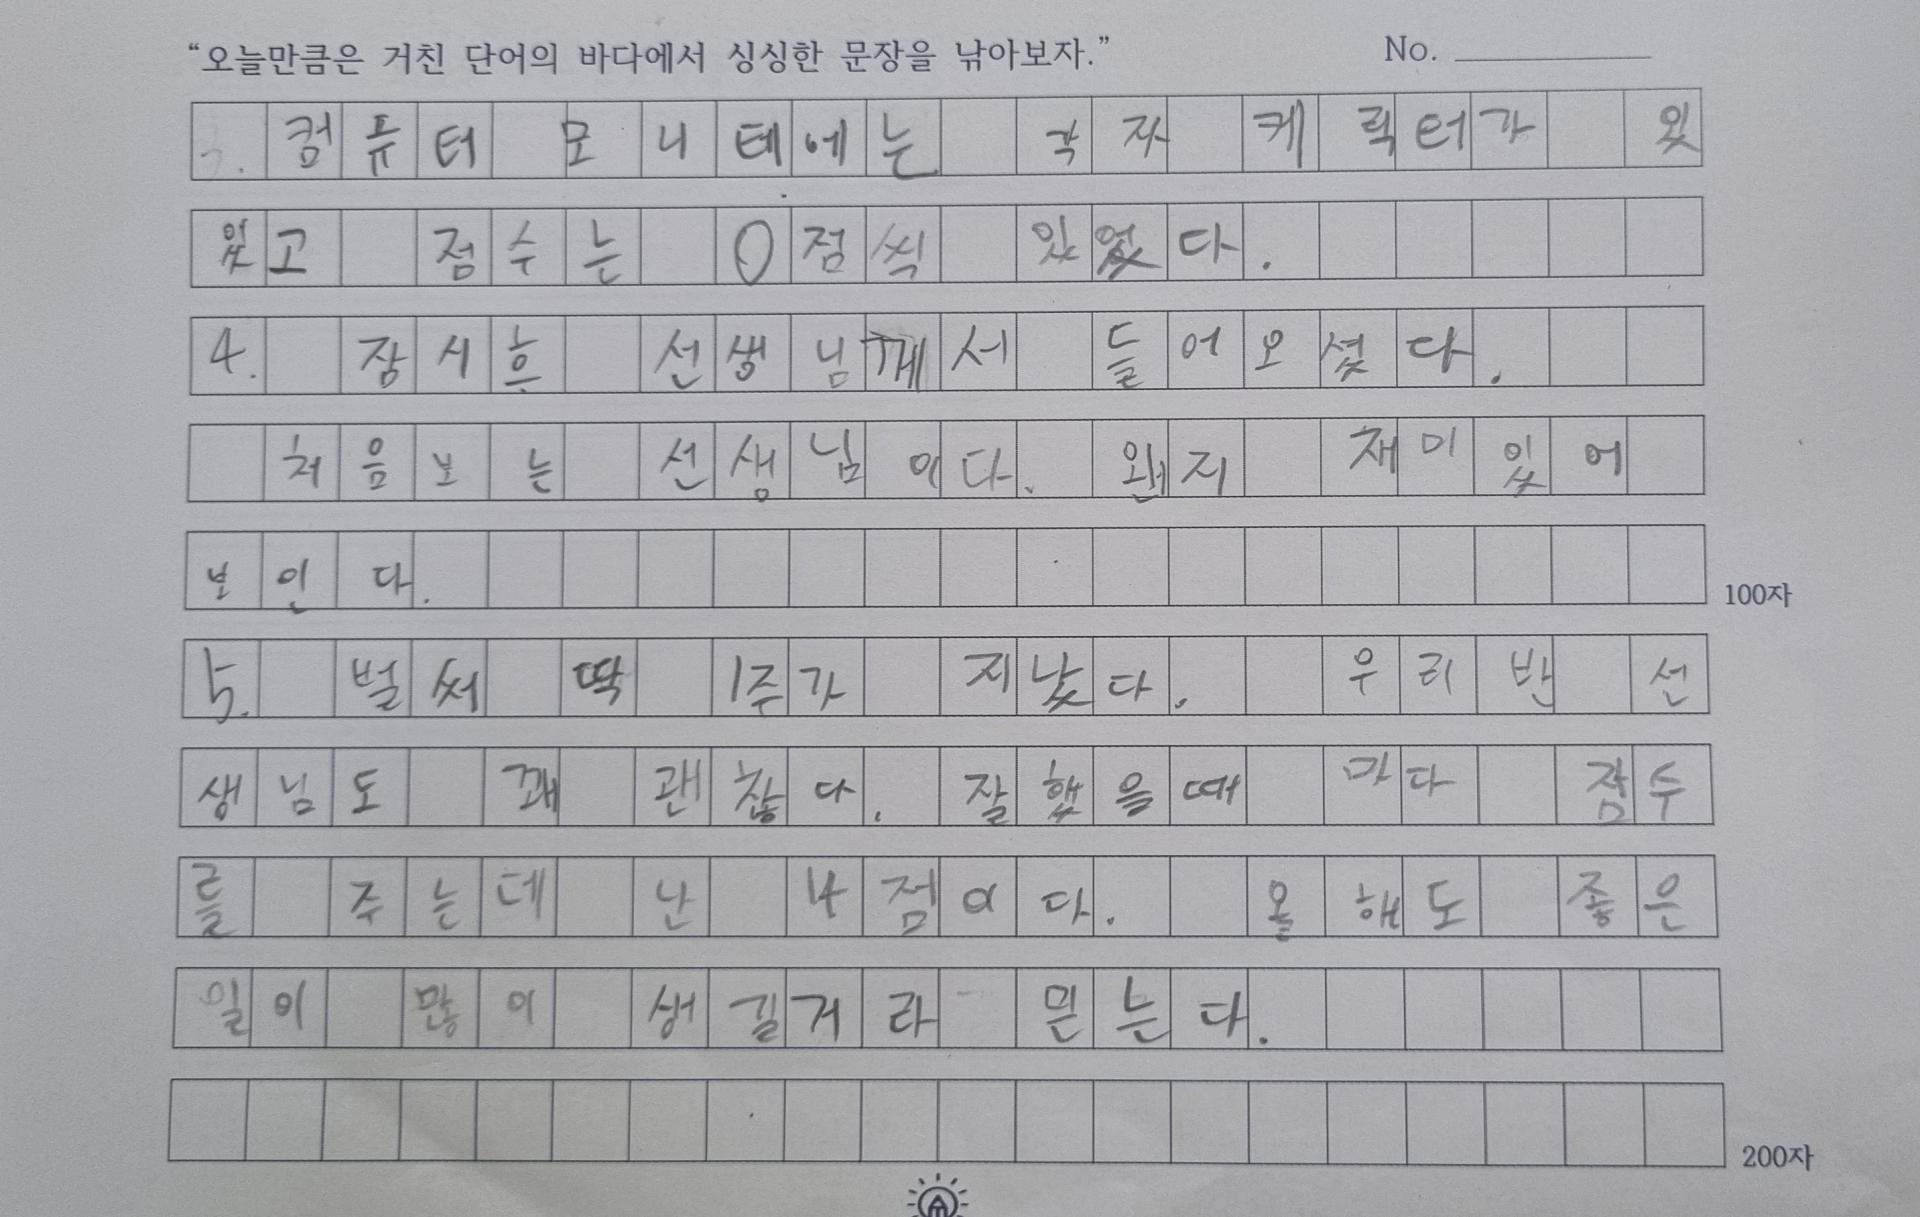 “오늘만큼은 거친 단어의 바다에서 싱싱한 문장을 낚아보자.” No.
3. 컴퓨터 모니테에는 각자 케릭터가 있
있고 점수는 0점씩 있었다.
4. 장시흔 선생님께서 들어오셨다.
처음보는 선생님이다. 왠지 재미있어
보인다.
100자
5. 벌써 딱 1주가 지났다. 우리반 선
생님도 꽤 괜찮다. 잘했을때 마다 점수
를 주는데 난 4점이다. 올해도 좋은
일이 많이 생길거라 믿는다.
200자